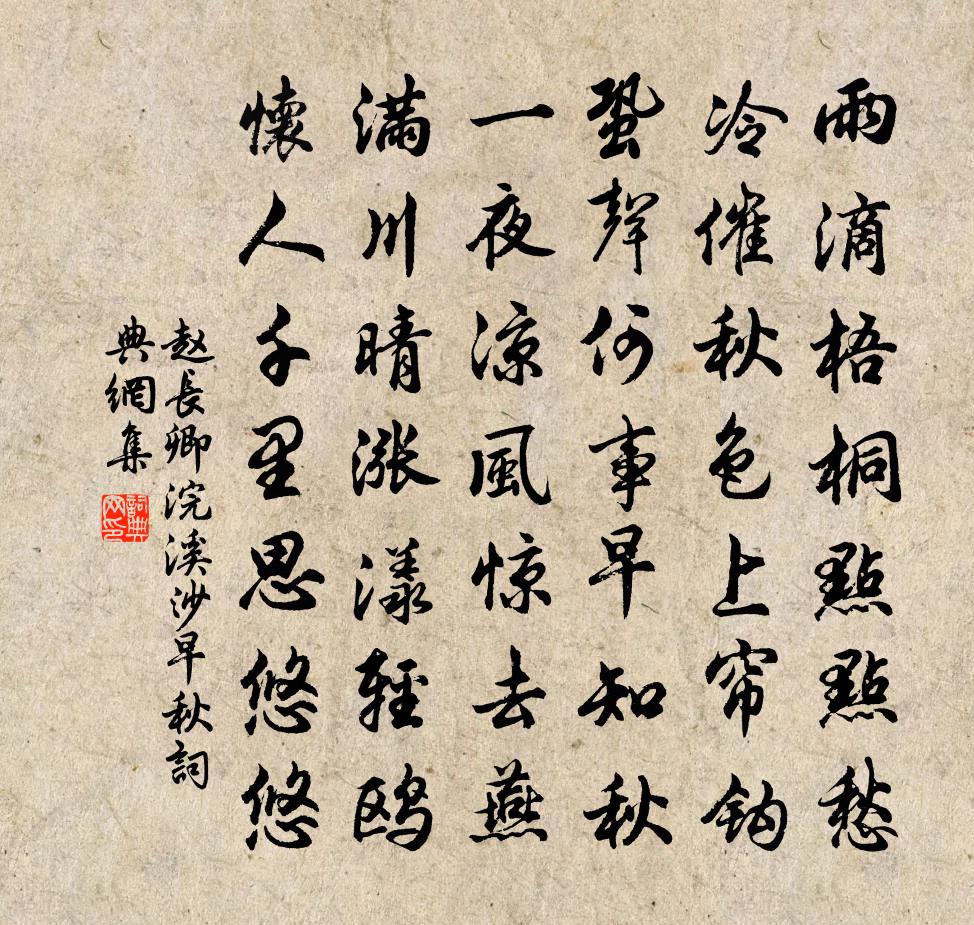 雨滴梧桐點點愁
冷催秋色上帘鈎
蛩聲何事早知秋
一夜凉風惊去燕
滿川晴漲漾輕鸥
懷人千里思悠悠
赵長卿浣溪沙早秋詞
典網集
詞典网印